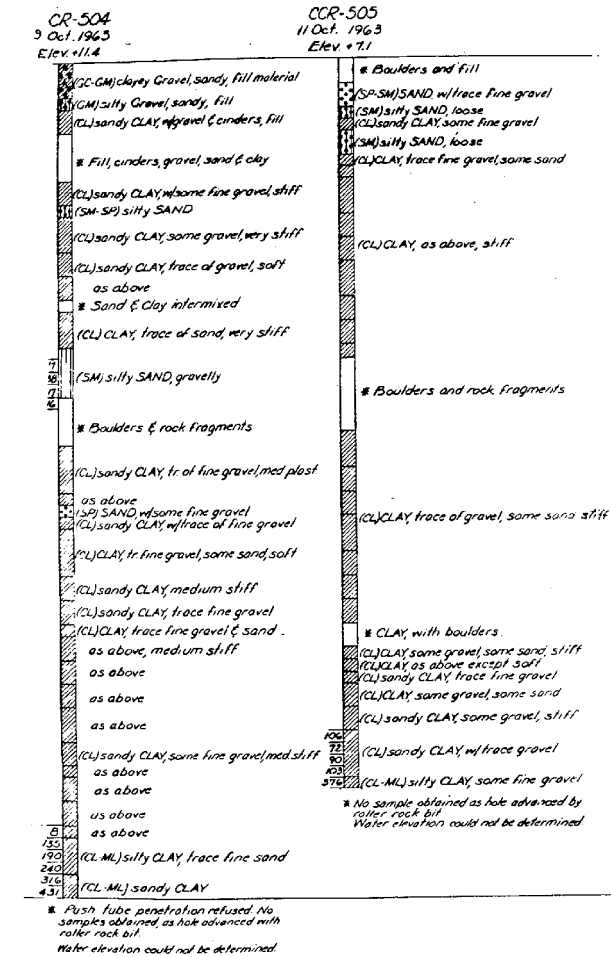 CR-504
9 Oct. 1963
Elev. +11.4
(GC-GM) clayey Gravel, sandy, fill material
(GM) silty Gravel, sandy, fill
(CL) sandy CLAY, w/gravel & cinders, fill
* Fill, cinders, gravel, sand & clay
(CL) sandy CLAY, w/some fine gravel, stiff
(SM-SP) silty SAND
(CL) sandy CLAY, some gravel, very stiff
(CL) sandy CLAY, trace of gravel, soft
as above
* Sand & Clay intermixed
(CL) CLAY, trace of sand, very stiff
(SM) silty SAND, gravelly
17
16
* Boulders & rock fragments
(CL) sandy CLAY, tr. of fine gravel, med plast.
as above
(SP) SAND, w/some fine gravel
(CL) sandy CLAY w/trace of fine gravel
(CL) CLAY, tr. fine gravel, some sand, soft
(CL) sandy CLAY, medium stiff
(CL) sandy CLAY, trace fine gravel
(CL) CLAY, trace fine gravel & sand.
as above, medium stiff
as above
as above
as above
(CL) sandy CLAY, some fine gravel, med. stiff
as above
as above
as above
8 as above
135
190 (CL-ML) silty CLAY, trace fine sand
240
316
431 (CL-ML) sandy CLAY
* Push tube penetration refused. No
samples obtained, as hole advanced with
roller rock bit.
Water elevation could not be determined.
CCR-505
11 Oct. 1963
Elev. +7.1
* Boulders and fill
(SP-SM) SAND, w/trace fine gravel
(SM) silty SAND, loose
(CL) sandy CLAY, some fine gravel
(SM) silty SAND, loose
(CL) CLAY, trace fine gravel, some sand
(CL) CLAY, as above, stiff
* Boulders and rock fragments
(CL) CLAY, trace of gravel, some sand stiff
* CLAY, with boulders.
(CL) CLAY, some gravel, some sand, stiff
(CL) CLAY, as above except soft
(CL) sandy CLAY, trace fine gravel
(CL) CLAY, some gravel, some sand
(CL) sandy CLAY, some gravel, stiff
106
72 (CL) sandy CLAY, w/trace gravel
90
103
376 (CL-ML) silty CLAY, some fine gravel
* No sample obtained as hole advanced by
roller rock bit
Water elevation could not be determined